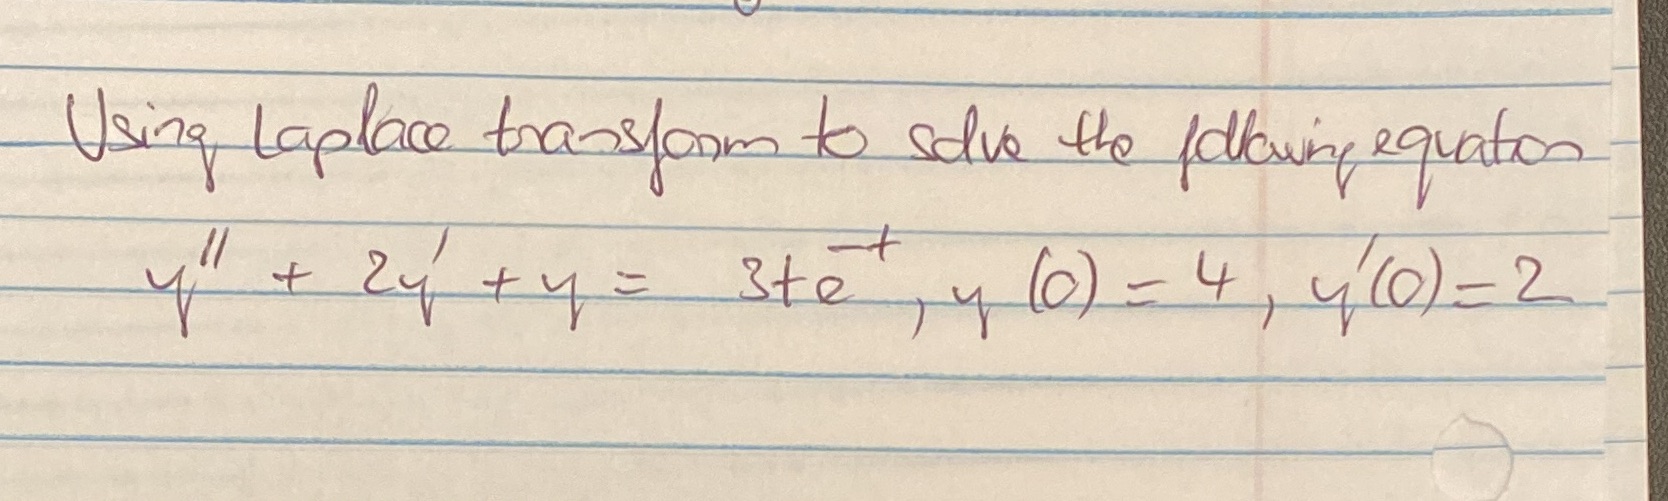 Using Laplace transform to solve the following equation
y'' + 2y' + y = 3te^-t, y(0) = 4, y'(0) = 2